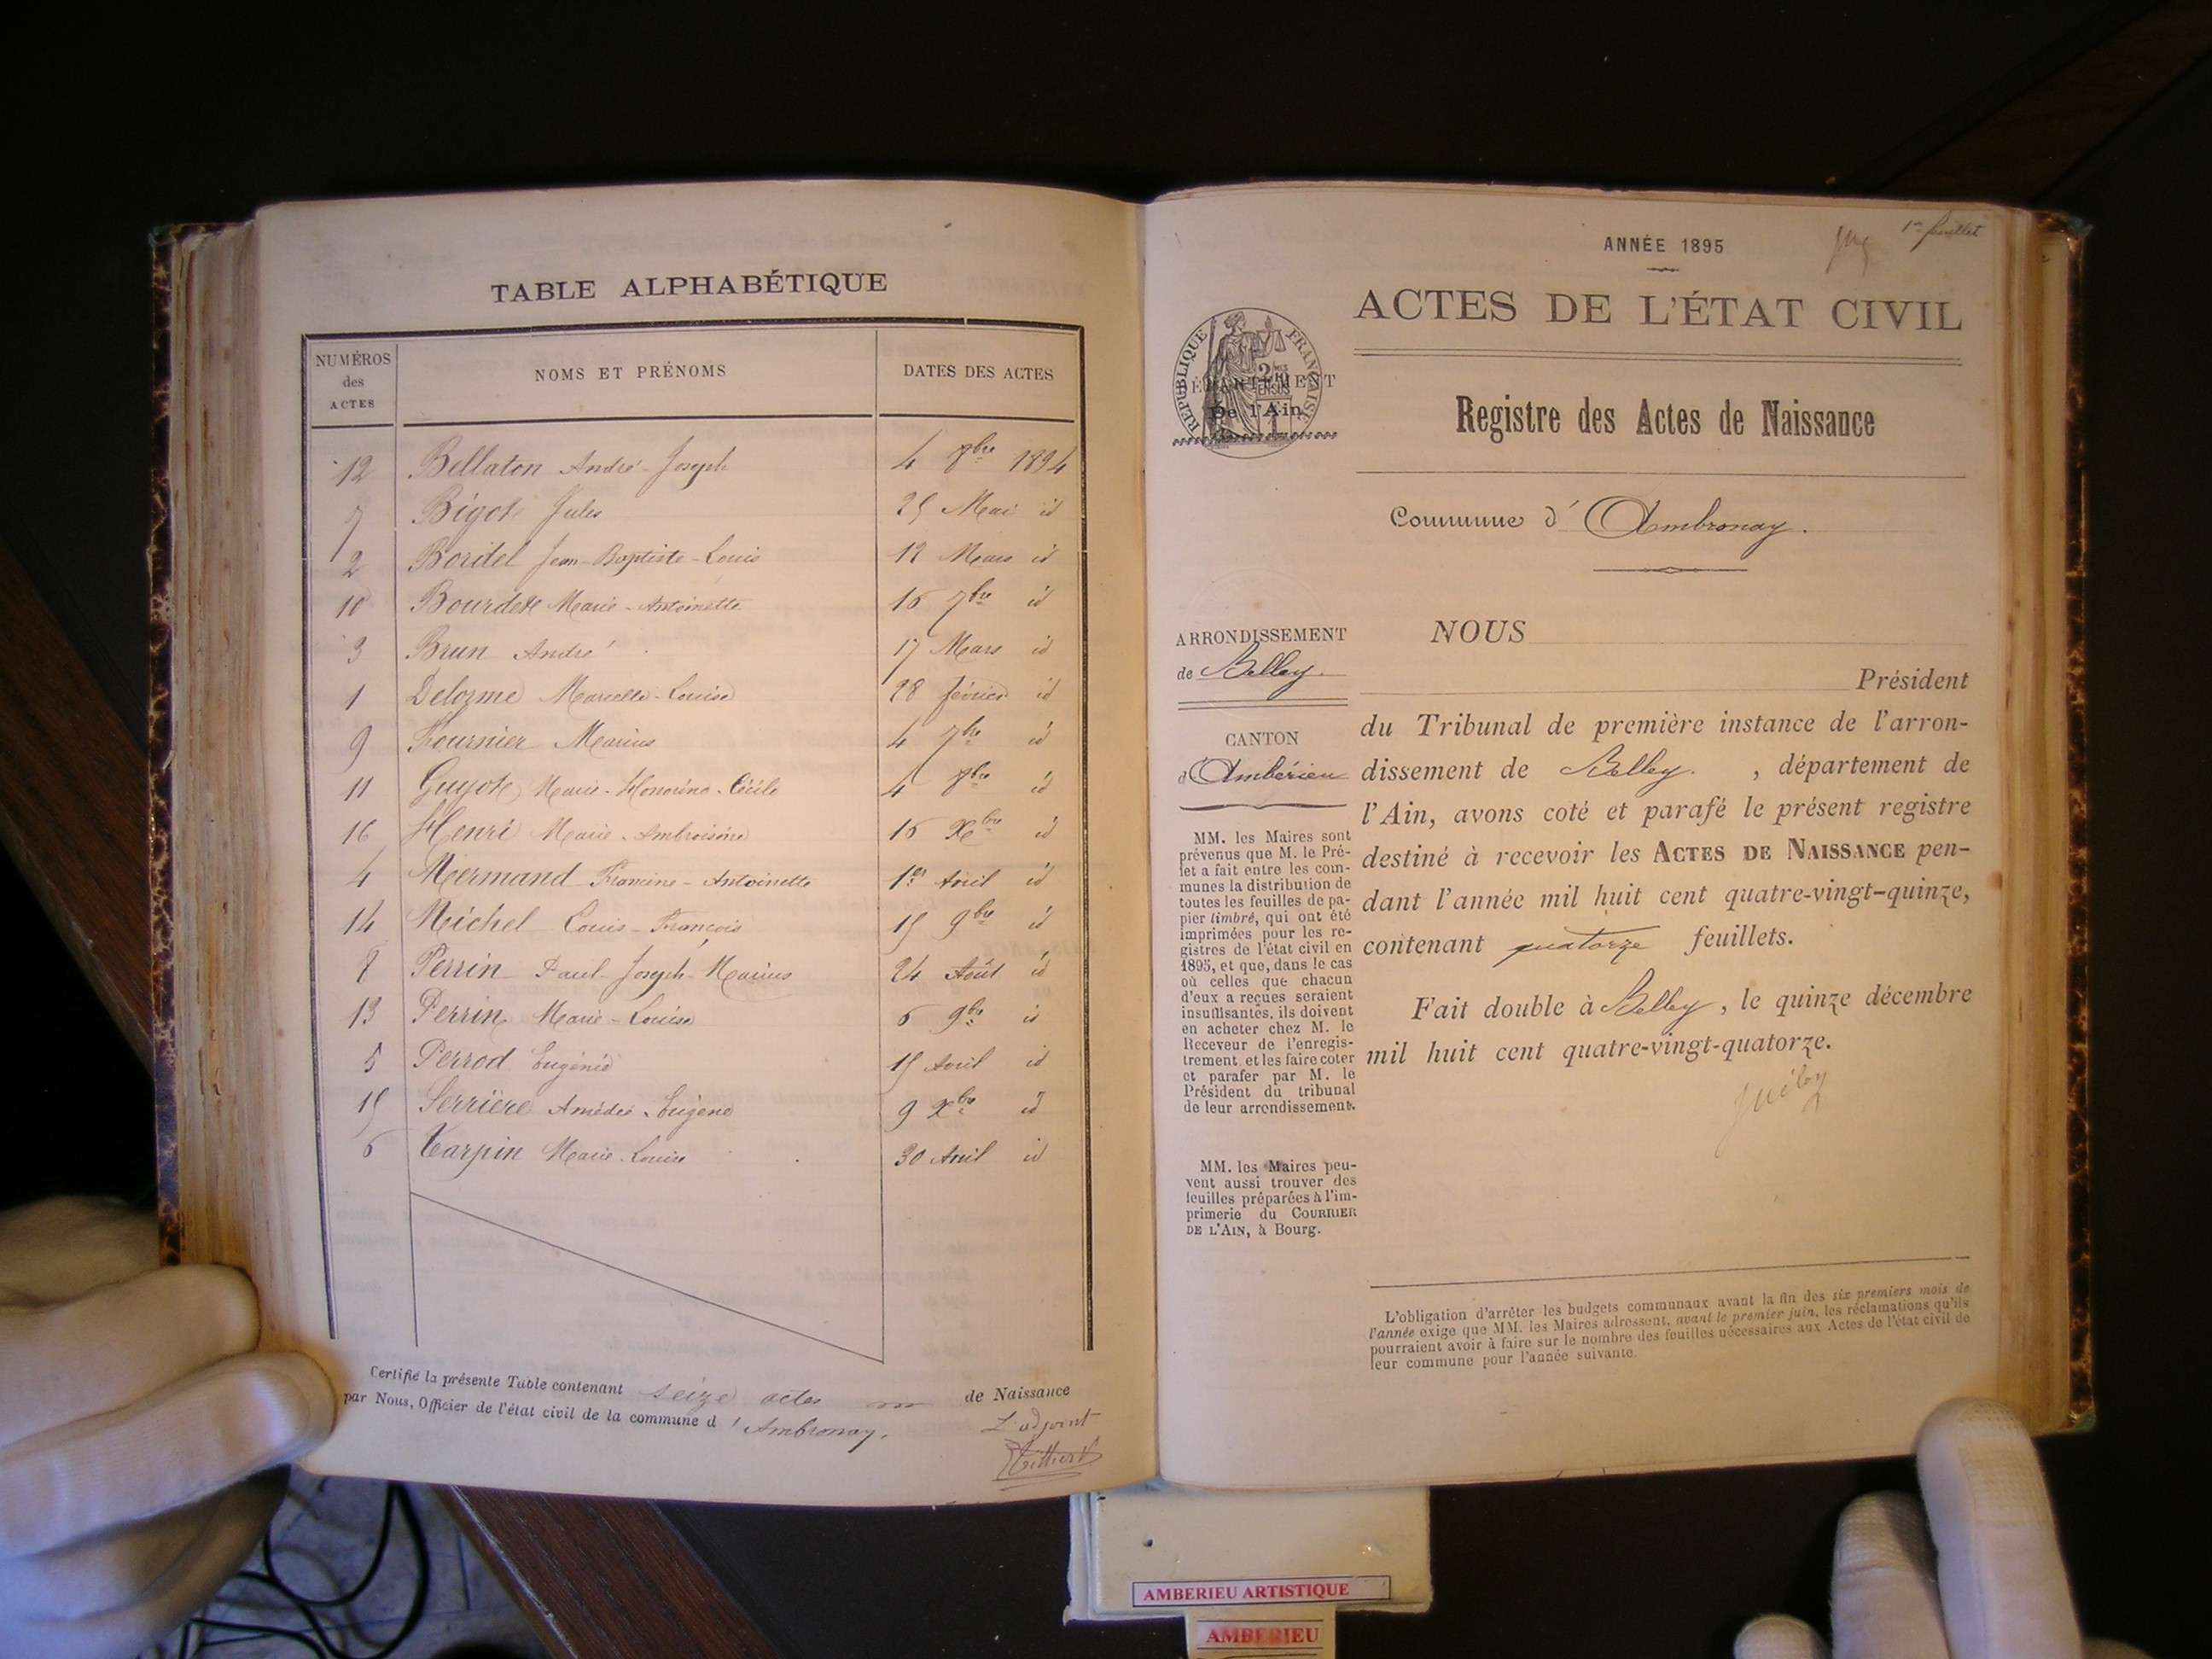 TABLE ALPHABÉTIQUE
NUMÉROS
des
ACTES
NOMS ET PRÉNOMS
DATES DES ACTES
12 Bellaton André-Joseph 4 8bre 1894
7 Bigot Jules 25 Mai id
2 Bordel Jean-Baptiste-Louis 12 Mars id
10 Marie-Antoinette 16 7bre id
3 Brun André 17 Mars id
1 Delorme Marcelle-Louise 28 février id
9 Fournier Marius 4 7bre id
11 Guyot Marie-Honorine-Cécile 4 8bre id
16 Henri Marie-Ambroisine 16 Xbre id
4 Mermand Francine-Antoinette 1er Avril id
14 Michel Louis-François 15 9bre id
8 Perrin Paul-Joseph-Marius 24 Août id
13 Perrin Marie-Louise 6 9bre id
5 Perrod Eugénie 15 Avril id
15 Serrière Amédée-Eugène 9 Xbre id
6 Tarpin Marie-Louise 30 Avril id
Certifié la présente Table contenant seize actes de Naissance
par Nous, Officier de l'état civil de la commune d'Ambronay.
L'adjoint
1er feuillet
ANNÉE 1895
ACTES DE L'ÉTAT CIVIL
RÉPUBLIQUE FRANÇAISE
DÉPARTEMENT
De l'Ain
Registre des Actes de Naissance
Commune d'Ambronay.
ARRONDISSEMENT
de Belley.
CANTON
d'Ambérieu
MM. les Maires sont
prévenus que M. le Pré-
fet a fait entre les com-
munes la distribution de
toutes les feuilles de pa-
pier timbré, qui ont été
imprimées pour les re-
gistres de l'état civil en
1895, et que, dans le cas
où celles que chacun
d'eux a reçues seraient
insuffisantes, ils doivent
en acheter chez M. le
Receveur de l'enregis-
trement et les faire coter
et parafer par M. le
Président du tribunal
de leur arrondissement.
MM. les Maires peu-
vent aussi trouver des
feuilles préparées à l'im-
primerie du COURRIER
DE L'AIN, à Bourg.
NOUS
Président
du Tribunal de première instance de l'arron-
dissement de Belley. , département de
l'Ain, avons coté et parafé le présent registre
destiné à recevoir les ACTES DE NAISSANCE pen-
dant l'année mil huit cent quatre-vingt-quinze,
contenant quatorze feuillets.
Fait double à Belley, le quinze décembre
mil huit cent quatre-vingt-quatorze.
L'obligation d'arrêter les budgets communaux avant la fin des six premiers mois de
l'année exige que MM. les Maires adressent, avant le premier juin, les réclamations qu'ils
pourraient avoir à faire sur le nombre des feuilles nécessaires aux Actes de l'état civil de
leur commune pour l'année suivante.
AMBERIEU ARTISTIQUE
AMBERIEU